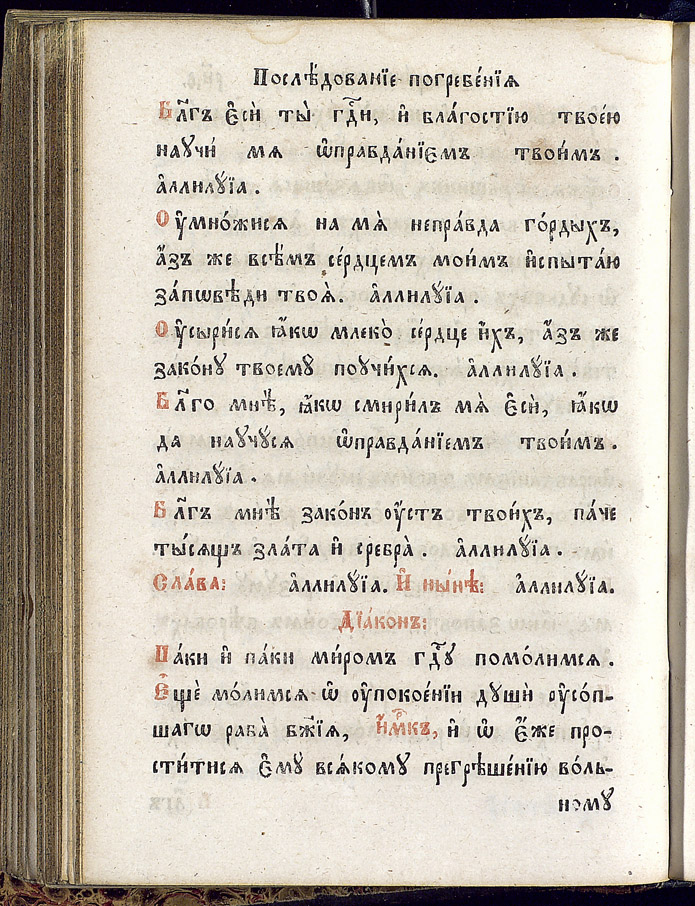 Послѣ́дованїе погребе́нїѧ
Бл҃гъ є҆сѝ ты̀ гд҇и, и҆ бла́гостїю твое́ю
научи́ мѧ ѡ҆правда́нїємъ твои́мъ.
а҆ллилꙋ́їа.
Оу҆мно́жисѧ на мѧ̀ непра́вда го́рдыхъ,
а҆́зъ же всѣ́мъ се́рдцемъ мои́мъ и҆спыта́ю
за́пѡвѣди твоѧ̀. а҆ллилꙋ́їа.
Оу҆сыри́сѧ ꙗ҆́кѡ млеко̀ се́рдце и҆́хъ, а҆́зъ же
зако́нꙋ твоемꙋ̀ поучи́хсѧ. а҆ллилꙋ́їа.
Бл҃го мнѣ̀, ꙗ҆́кѡ смири́лъ мѧ̀ є҆сѝ, ꙗ҆́кѡ
да научꙋ́сѧ ѡ҆правда́нїемъ твои́мъ.
а҆ллилꙋ́їа.
Бл҃гъ мнѣ̀ зако́нъ оу҆́стъ твои́хъ, па́че
ты́сѧщъ зла́та и҆ сребра̀. а҆ллилꙋ́їа.
Сла́ва: а҆ллилꙋ́їа. И҆ ны́нѣ: а҆ллилꙋ́їа.
Дїа́конъ:
Па́ки и҆ па́ки ми́ромъ гд҇ꙋ помо́лимсѧ.
Є҆щѐ мо́лимсѧ ѡ҆ оу҆покое́нїи дꙋшѝ оу҆со́п-
шагѡ раба̀ бж҃їѧ, и҆́м҃къ, и҆ ѡ҆ є҆́же про-
сти́тисѧ є҆мꙋ̀ всѧ́комꙋ прегрѣше́нїю во́ль-
номꙋ